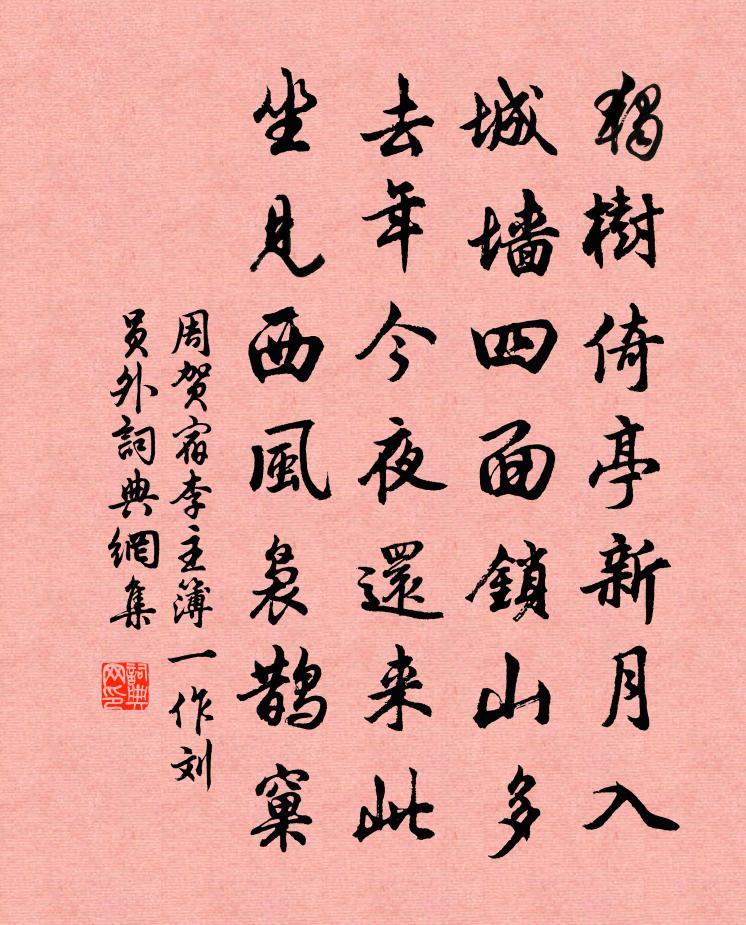 獨樹倚亭新月入
城墙四面鎖山多
去年今夜還来此
坐見西風袅鵲窠
周贺宿李主簿一作刘
员外詞典網集
詞典
网印